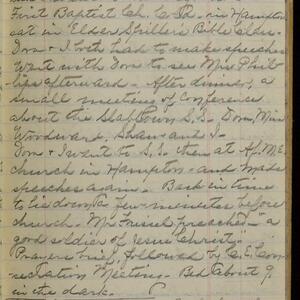 First Baptist Ch. C. Rd. in Hampton
sat in Elder Shiller's Bible Class.
Dom & I both had to make speeches
Went with Dom to see Mrs. Phil-
lips afterward. After dinner, a
small meeting of Conference
about the Slabtown S.S. Dom, Miss
Woodward, Shaw and I.
Dom & I went to S.S. then at Af. M.E.
church in Hampton - and made
speeches again. Back in time
to lie down a few minutes before
church. Mr. Frissel preached - "a
good soldier of Jesus Christ."
Prayers brief, followed by C. E. Con-
secration Meeting. Bed about 9.
in the dark.